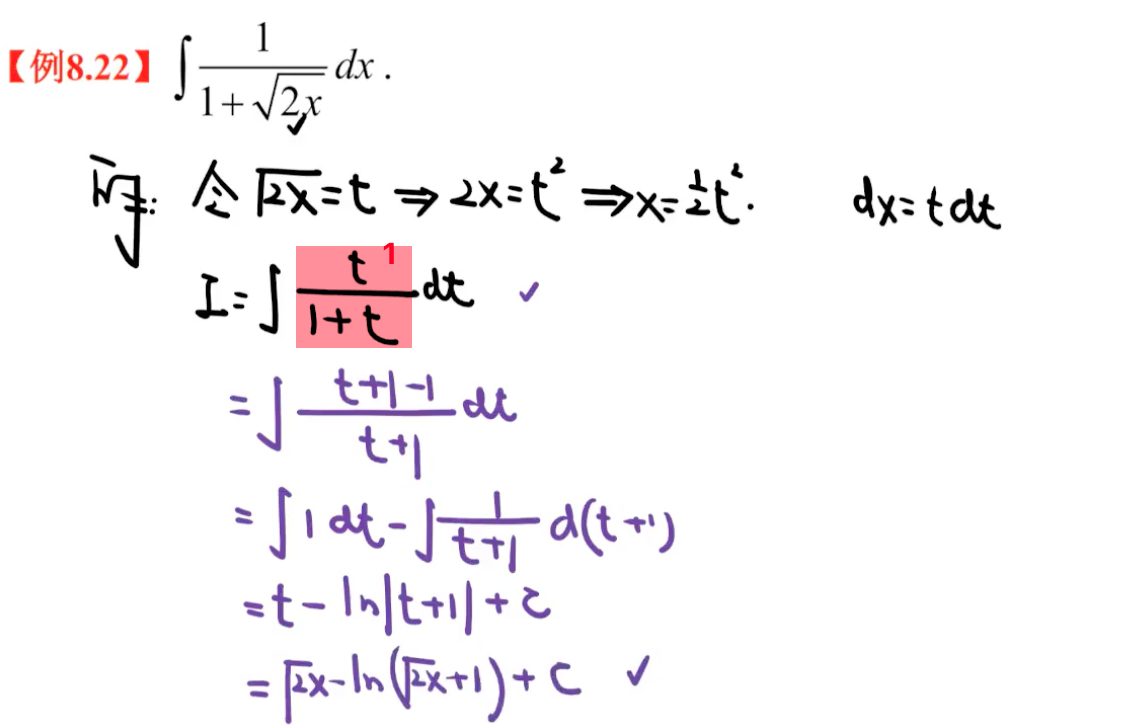 【例8.22】 ∫ 1/(1+√(2x)) dx .
解: 令 √(2x)=t ⇒ 2x=t² ⇒ x=½t². dx=t dt
1
I=∫ t/(1+t) dt ✓
=∫ (t+1-1)/(t+1) dt
=∫ 1 dt - ∫ 1/(t+1) d(t+1)
=t-ln|t+1|+C
=√(2x)-ln(√(2x)+1)+C ✓